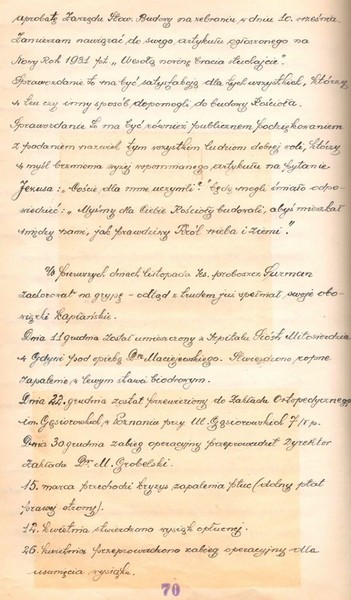 aprobatę Zarządu Stow. Budowy na zebraniu w dniu 10. września.
Zamierzam nawiązać do swego artykułu ogłoszonego na
Nowy Rok 1931 pt. „Wesołą nowinę bracia słuchajcie".
Sprawozdanie to ma być satysfakcją dla tych wszystkich, którzy
w ten czy inny sposób dopomogli do budowy Kościoła.
Sprawozdanie to ma być również publicznem podziękowaniem
z podaniem nazwisk tym wszystkim ludziom dobrej woli, którzy
w myśl brzmienia wyżej wspomnianego artykułu na pytanie
Jezusa: „Coście dla mnie uczynili?" będą mogli śmiało odpo-
wiedzieć: „Myśmy dla Ciebie Kościoły budowali, abyś mieszkał
między nami, jak prawdziwy Król nieba i ziemi."
W pierwszych dniach listopada ks. proboszcz Turzman
zachorował na grypę - odtąd z trudem już spełniał swoje obo-
wiązki kapłańskie.
Dnia 11 grudnia został umieszczony w Szpitalu Sióstr Miłosierdzia
w Gdyni pod opieką Dr. Maciejewskiego. Stwierdzono ropne
zapalenie w lewym stawie biodrowym.
Dnia 22. grudnia został przewieziony do Zakładu Ortopedycznego
im. Gąsiorowskich w Poznaniu przy Ul. Gąsiorowskich 7/8 p.
Dnia 30 grudnia zabieg operacyjny przeprowadził Dyrektor
Zakładu Dr. M. Grobelski.
15. marca przechodzi kryzys zapalenia płuc (dolny płat
prawej strony).
12. kwietnia stwierdzono wysięk opłucnej.
26. kwietnia przeprowadzono zabieg operacyjny dla
usunięcia wysięku.
70